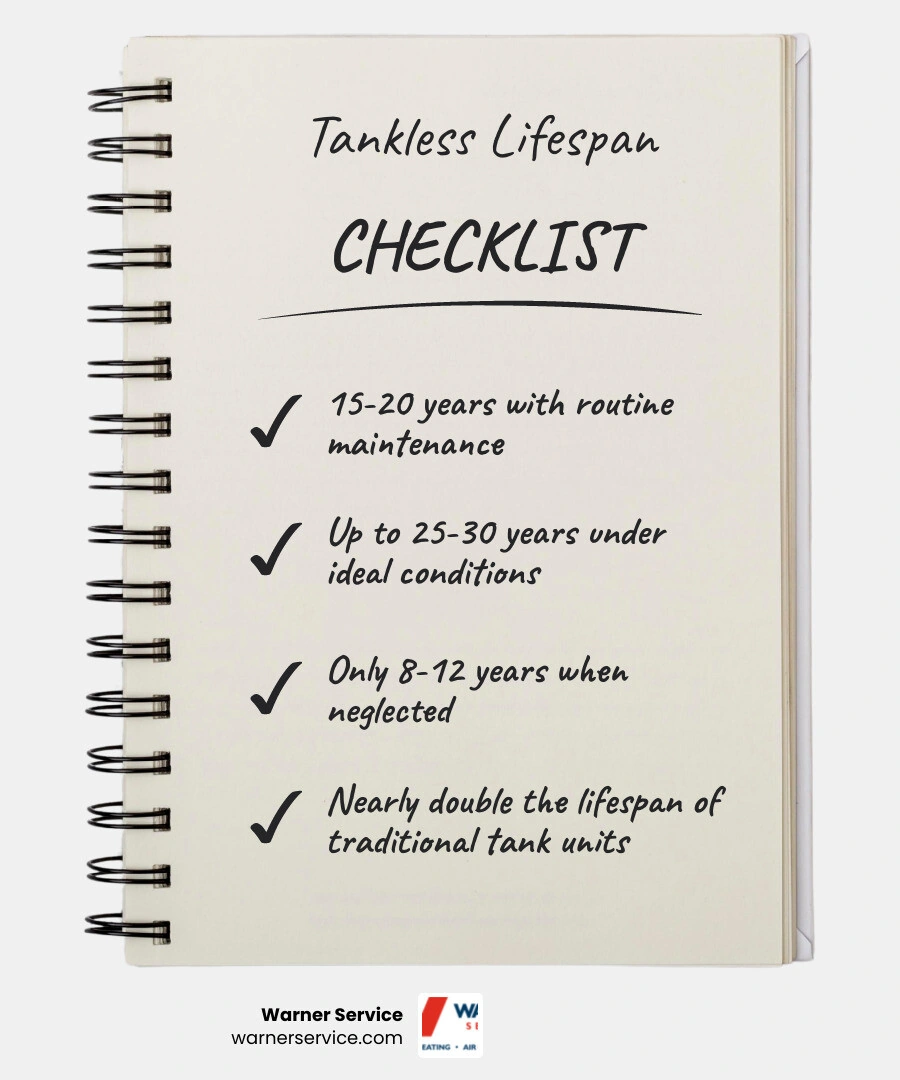 Tankless Lifespan
CHECKLIST
15-20 years with routine
maintenance
Up to 25-30 years under
ideal conditions
Only 8-12 years when
neglected
Nearly double the lifespan of
traditional tank units
Warner Service
warnerservice.com
EATING • AIR